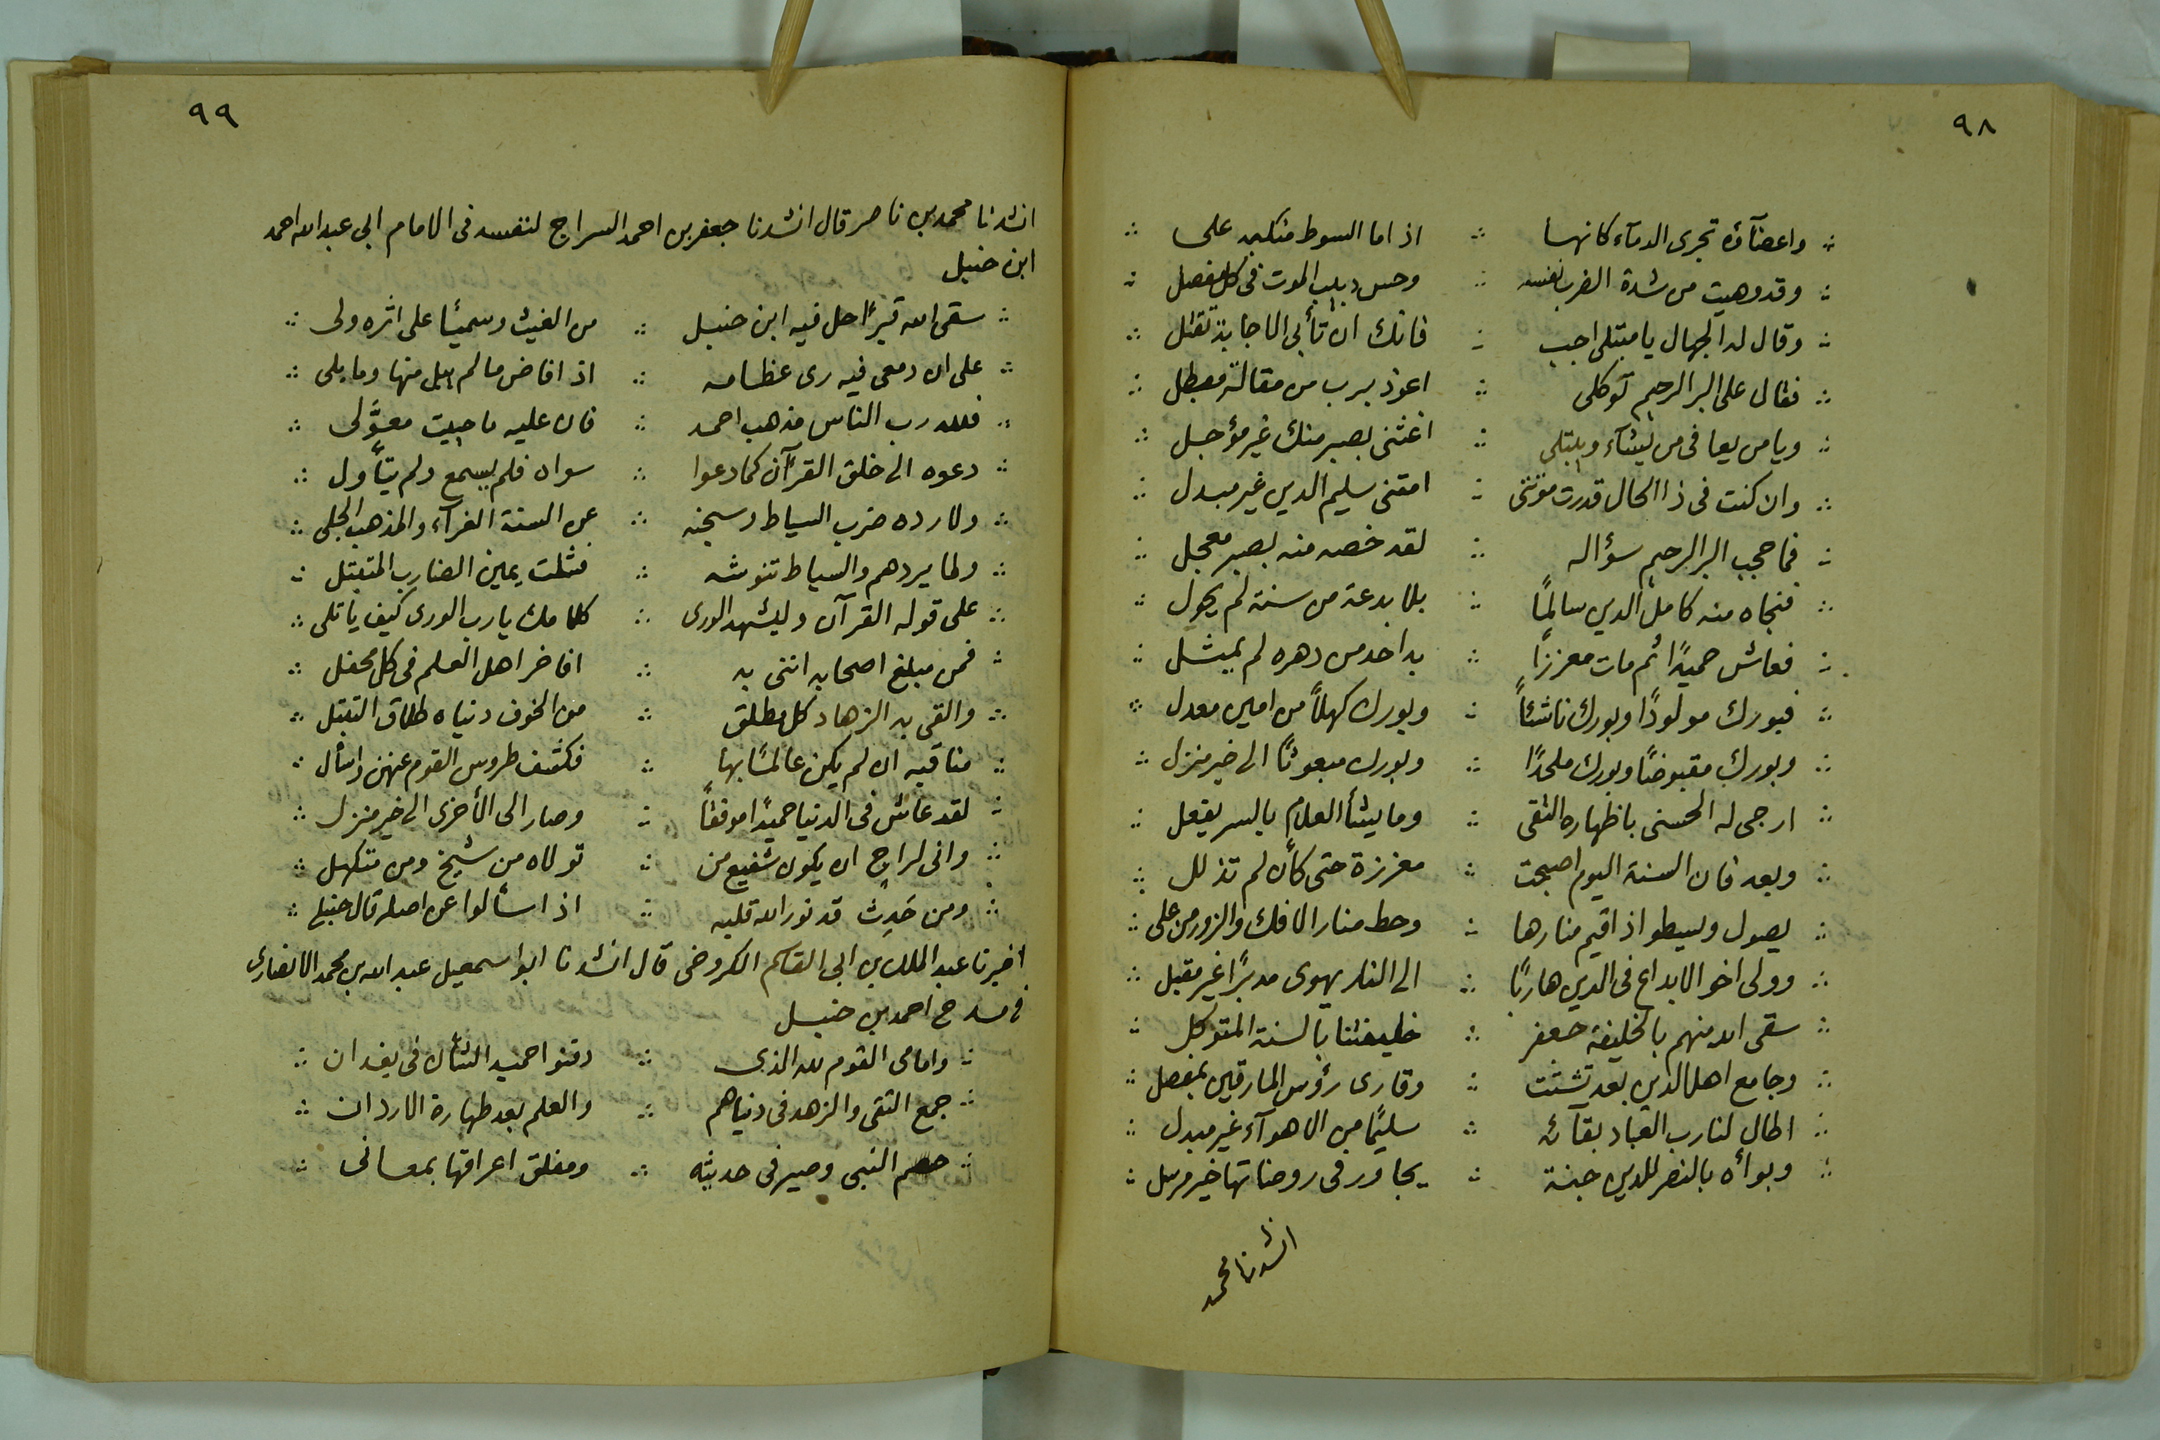 ٩٨
واعضآؤه تجرى الدمآء كانها ∴ اذ اما السوط منكبه على ∴
وقد وهيت من شدة الضرب نفسه ∴ وحس دبيب الموت فى كل مفصل ∴
وقال له الجهال يا مبتلى اجب ∴ فانك ان تأبى الاجابة تقتل ∴
فقال على البر الرحيم توكلى ∴ اعوذ برب من مقالة معطل ∴
ويامن يعافى من يشآء ويبتلى ∴ اغثنى بصبر منك غير مؤجل ∴
وان كنت فى ذا الحال قدرت موتتى ∴ امتنى سليم الدين غير مبدل ∴
فما حجب البر الرحيم سؤاله ∴ لقد خصه منه بصبر معجل ∴
فنجاه منه كامل الدين سالمًا ∴ بلا بدعة من سنة لم يحول ∴
فعاش حميدًا ثم مات معززًا ∴ به احد من دهره لم يمثل ∴
فبورك مولودًا وبورك ناشئاً ∴ وبورك كهلاً من امين معدل ∴
وبورك مقبوضًا وبورك ملحدًا ∴ وبورك مبعوثًا الى خير منزل ∴
ارجى له الحسنى باظهاره التقى ∴ وما يشأ العلام بالسر يفعل ∴
وبعد فان السنة اليوم اصبحت ∴ معززة حتى كأن لم تذلل ∴
يصول ويسطو اذ اقيم منارها ∴ وحط منار الافك والزور من على ∴
وولى اخو الابداع فى الدين هاربًا ∴ الى النار يهوى مدبرًا غير مقبل ∴
سقى الله منهم بالخليفة جعفر ∴ خليفتنا بالسنة المتوكل ∴
وجامع اهل الدين بعد تشتت ∴ وفارى رؤس المارقين بمفصل ∴
اطال لنا رب العباد بقآئه ∴ سليمًا من الاهوآء غير مبدل ∴
وبوأه بالنصر للدين جنة ∴ يجاور فى روضاتها خير مرسل ∴
انشدنا محمد
٩٩
انشدنا محمد بن ناصر قال انشدنا جعفر بن احمد السراج لنفسه فى الامام ابى عبد الله احمد
ابن حنبل
∴ سقى الله قبرًا حل فيه ابن حنبل ∴ من الغيث وسميًا على اثره ولى ∴
∴ على ان دمعى فيه رى عظامه ∴ اذ افاض مالم يبل منها وما بلى ∴
∴ فلله رب الناس مذهب احمد ∴ فان عليه ما حييت معوَّلى ∴
∴ دعوه الى خلق القرآن كما دعوا ∴ سواه فلم يسمع ولم يتأول ∴
∴ ولا رده ضرب السياط وسجنه ∴ عن السنة الغرآء والمذهب الجلى ∴
∴ ولما يردهم والسياط تنوشه ∴ فشلت يمين الضارب المتبتل ∴
∴ على قوله القرآن وليشهد الورى ∴ كلامك يا رب الورى كيف ما تلى ∴
∴ فمن مبلغ اصحابه اننى به ∴ افاخر اهل العلم فى كل محفل ∴
∴ والقى به الزهاد كل مطلق ∴ من الخوف دنياه طلاق التبتل ∴
∴ مناقبه ان لم يكن عالمًا بها ∴ فكشف طروس القوم عنهن واسأل ∴
∴ لقد عاش فى الدنيا حميدًا موفقًا ∴ وصار الى الأخرى الى خير منزل ∴
∴ وانى لراجٍ ان يكون شفيع من ∴ تولاه من شيخ ومن متكهل ∴
∴ ومن حَدِث قد نور الله قلبه ∴ اذ اسألوا عن اصله قال حنبلى ∴
اخبرنا عبد الملك بن ابى القاسم الكروخى قال انشدنا ابو اسمعيل عبد الله بن محمد الانصارى
فى مدح احمد بن حنبل
∴ وامامى القوم لله الذى ∴ دفنوا حميد الشأن فى بغدان ∴
∴ جمع التقى والزهد فى دنياهم ∴ والعلم بعد طهارة الاردان ∴
∴ خصم النبى وصيرفى حديثه ∴ ومفلق اعراقها بمعانى ∴